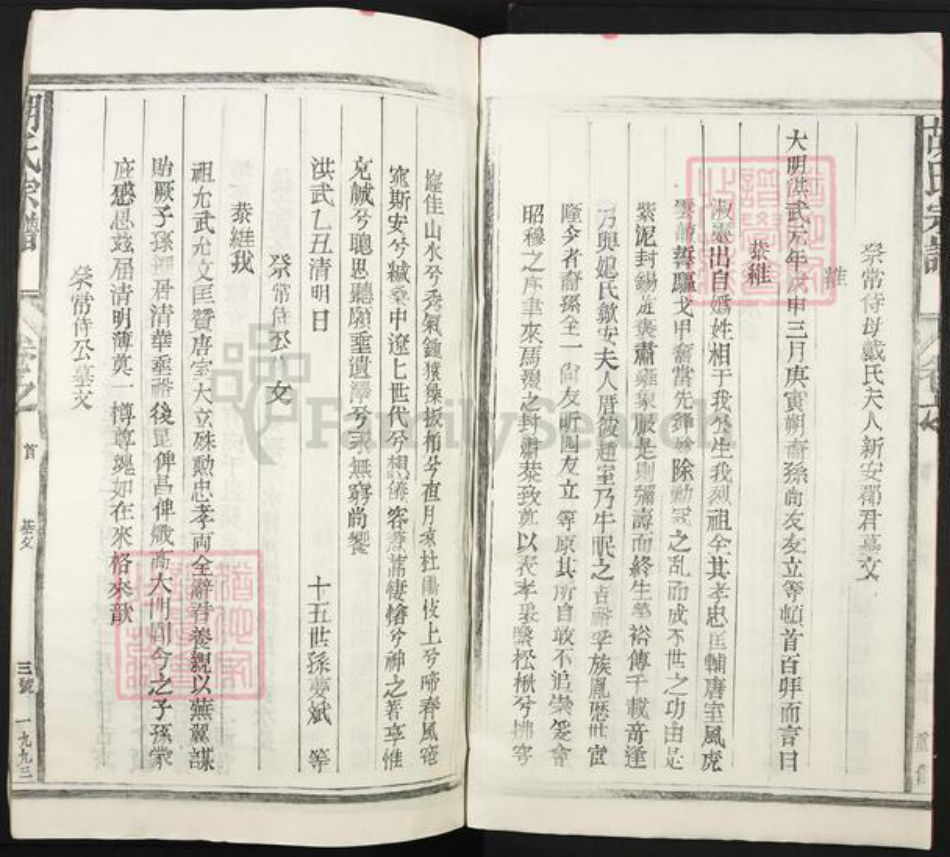 胡氏宗譜
祭常侍母戴氏夫人新安郡君墓文
維
大明洪武元年戊申三月庚寅朔裔孫尚友友立等頓首百拜而言曰
恭維
淑靈出自嬀姓相于我公生我烈祖全其孝忠匡輔唐室風虎
雲龍誓驅戈甲奮當先鋒除勦之亂而成不世之功由是
紫泥封錫肅雍象服是則彌壽而終生塋裕傳千載奇逢
乃與媲氏歙安夫人厝彼趙室乃牛眠之吉裕乎族胤歷世官
隆今者裔孫全一尚友昕國友立等原其所自敢不追崇爰會
昭穆之序聿來馬鬣之封肅恭致奠以表孝衷松楸兮拂穹
佳山水兮秀氣鍾猿猱扳柏兮直月來杜鵑伎上兮啼春風窀
窕斯安兮緘桑中遼上世代兮想儀容羞蘋悽愴兮神之著享惟
克誠兮聰思聽願垂遺澤兮永無窮尚饗
洪武乙丑清明日 十五世孫夢斌 等
祭常侍公文
恭維我
祖允武允文匡贊唐室大立殊勳忠孝兩全辭君養親以燕翼謀
貽厥子孫居清華垂裕後昆俾昌俾熾高大門閭今之子孫蒙
庇感思茲屆清明薄奠一樽尊魂如在來格來歆
祭常侍公墓文
胡氏宗譜 卷之
首
墓文
三號 一九九三
FamilySearch